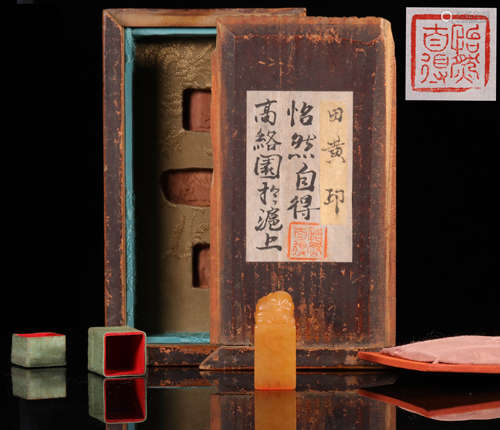 田黄印
怡然自得
高络園於滬上
怡然自得
怡然自得